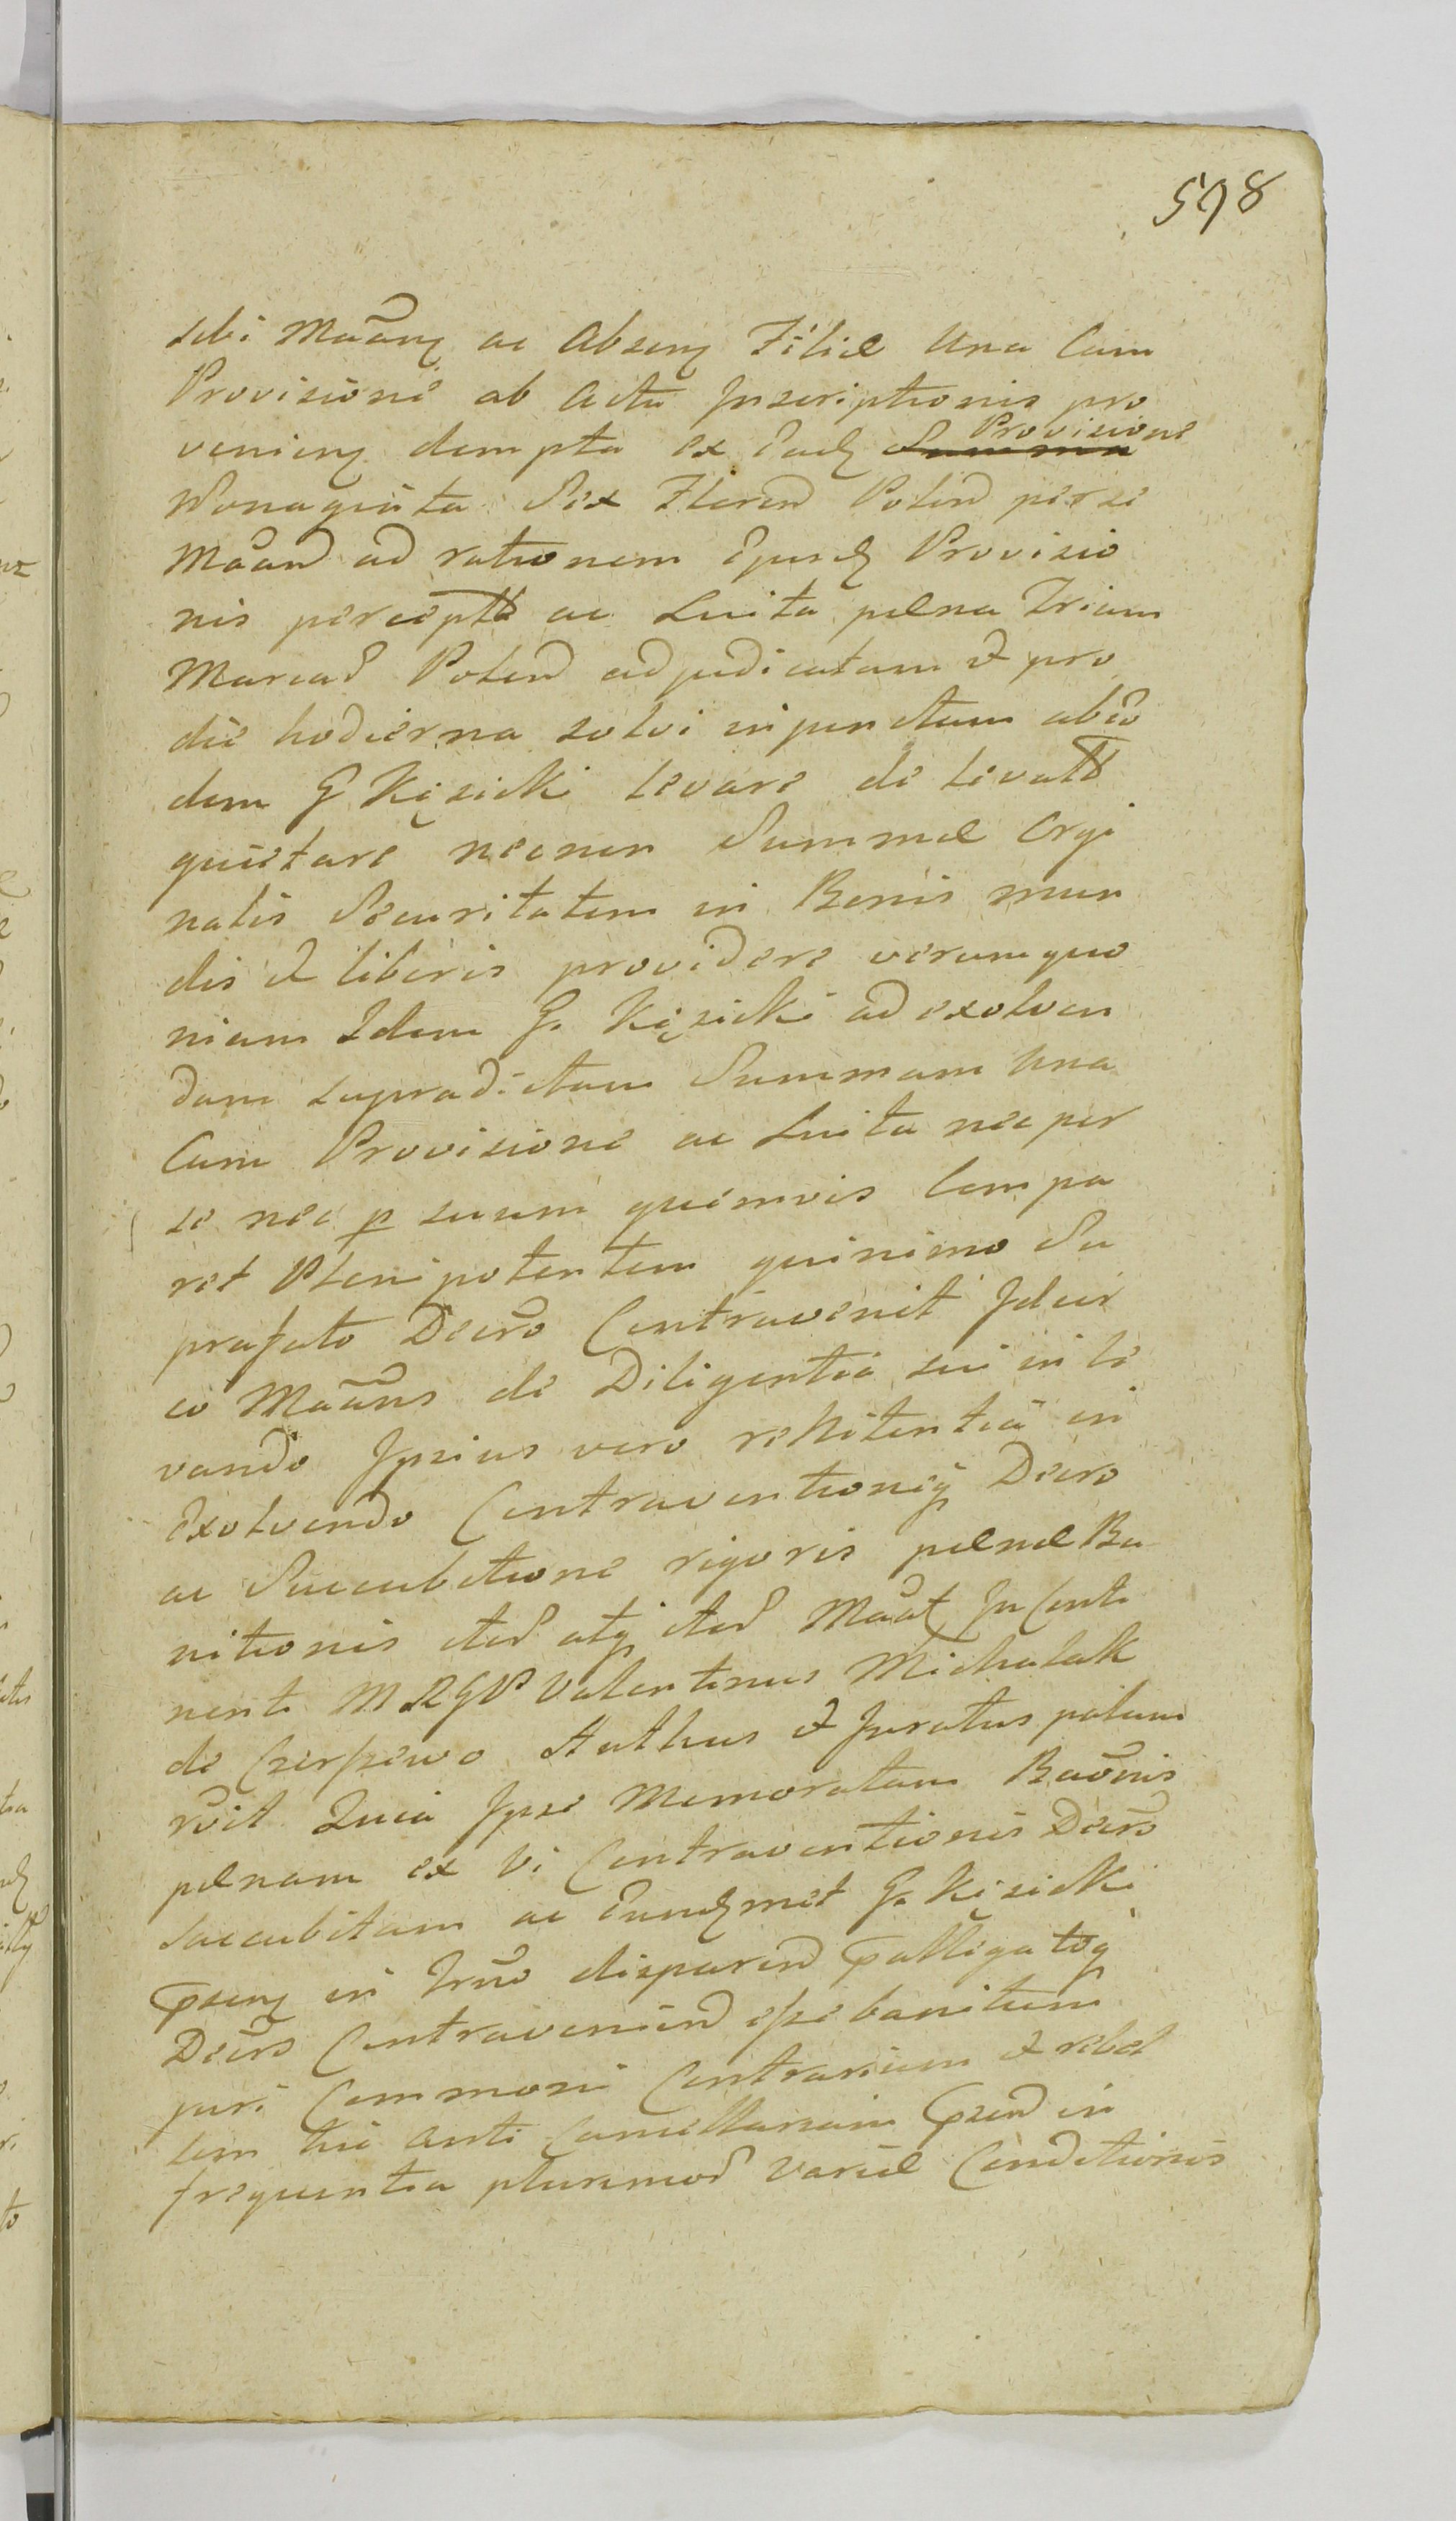 598
sibi Maãnʒ ac Absenʒ Filiæ Una Cum
Provisione ab Actu Inscriptionis pro
venienʒ dempta ex Eadʒ Summa Provisione
Nonaginta Sex Floren Polon per se
Maãn ad rationem Ejusdʒ Provisio
nis percept ac Luita pæna Trium
Marcar Polon adjudicatam et pro
die hodierna solvi injunctum ab eo
dem G Kęsicki levare de levatis
quietare necnon Summæ Orgi
nalis Securitatem in Bonis mun
dis et liberis providere verum quo
niam Idem G. Kęsicki ad exolven
dam supradictam Summam Una
Cum Provisione ac Luita nec per
se nec p suum quemvis Compa
ret Plenipotentem quinimo Su
prafato Decro Contravenit Idcir
co Maãns de Diligentia sui in le
vando Ipsius vero renitentia in
Exolvendo Contraventioneq Decro
ac Succubitione rigoris pænæ Ba
nitionis
nenti M R G P Valentinus Michalak
de Czerszewo Authus et Juratus palam
rcõit Quia Ipse Memoratam Baõnis
pænam ex Vi Contraventionis Decro
succubitam ac Eundʒmet G. Kęsicki
psenʒ in Trno disparen palligatoq
Decro Contravenien esse banitum
juri Communi Contrarium et rebel
lem hic ante Cancellariam psen in
frequentia plurimor Variæ Conditionis